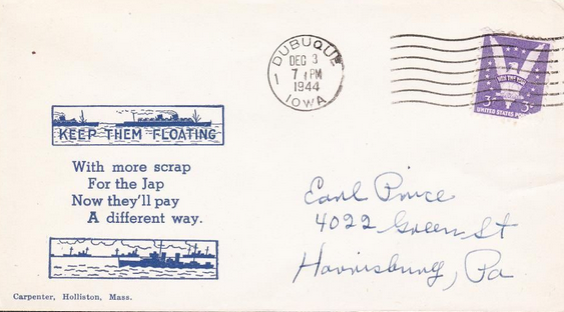 DUBUQUE
DEC 3
7 PM
1944
1
IOWA
WIN THE WAR
3¢ 3¢
UNITED STATES POSTAGE
KEEP THEM FLOATING
With more scrap
For the Jap
Now they'll pay
A different way.
Earl Price
4022 Green St
Harrisburg, Pa
Carpenter, Holliston, Mass.